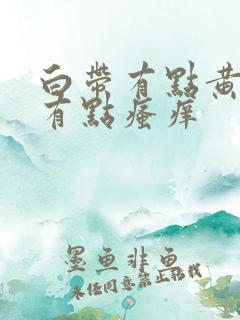 白帶有點黃
有點瘙痒
墨魚非魚
未经同意禁止转载